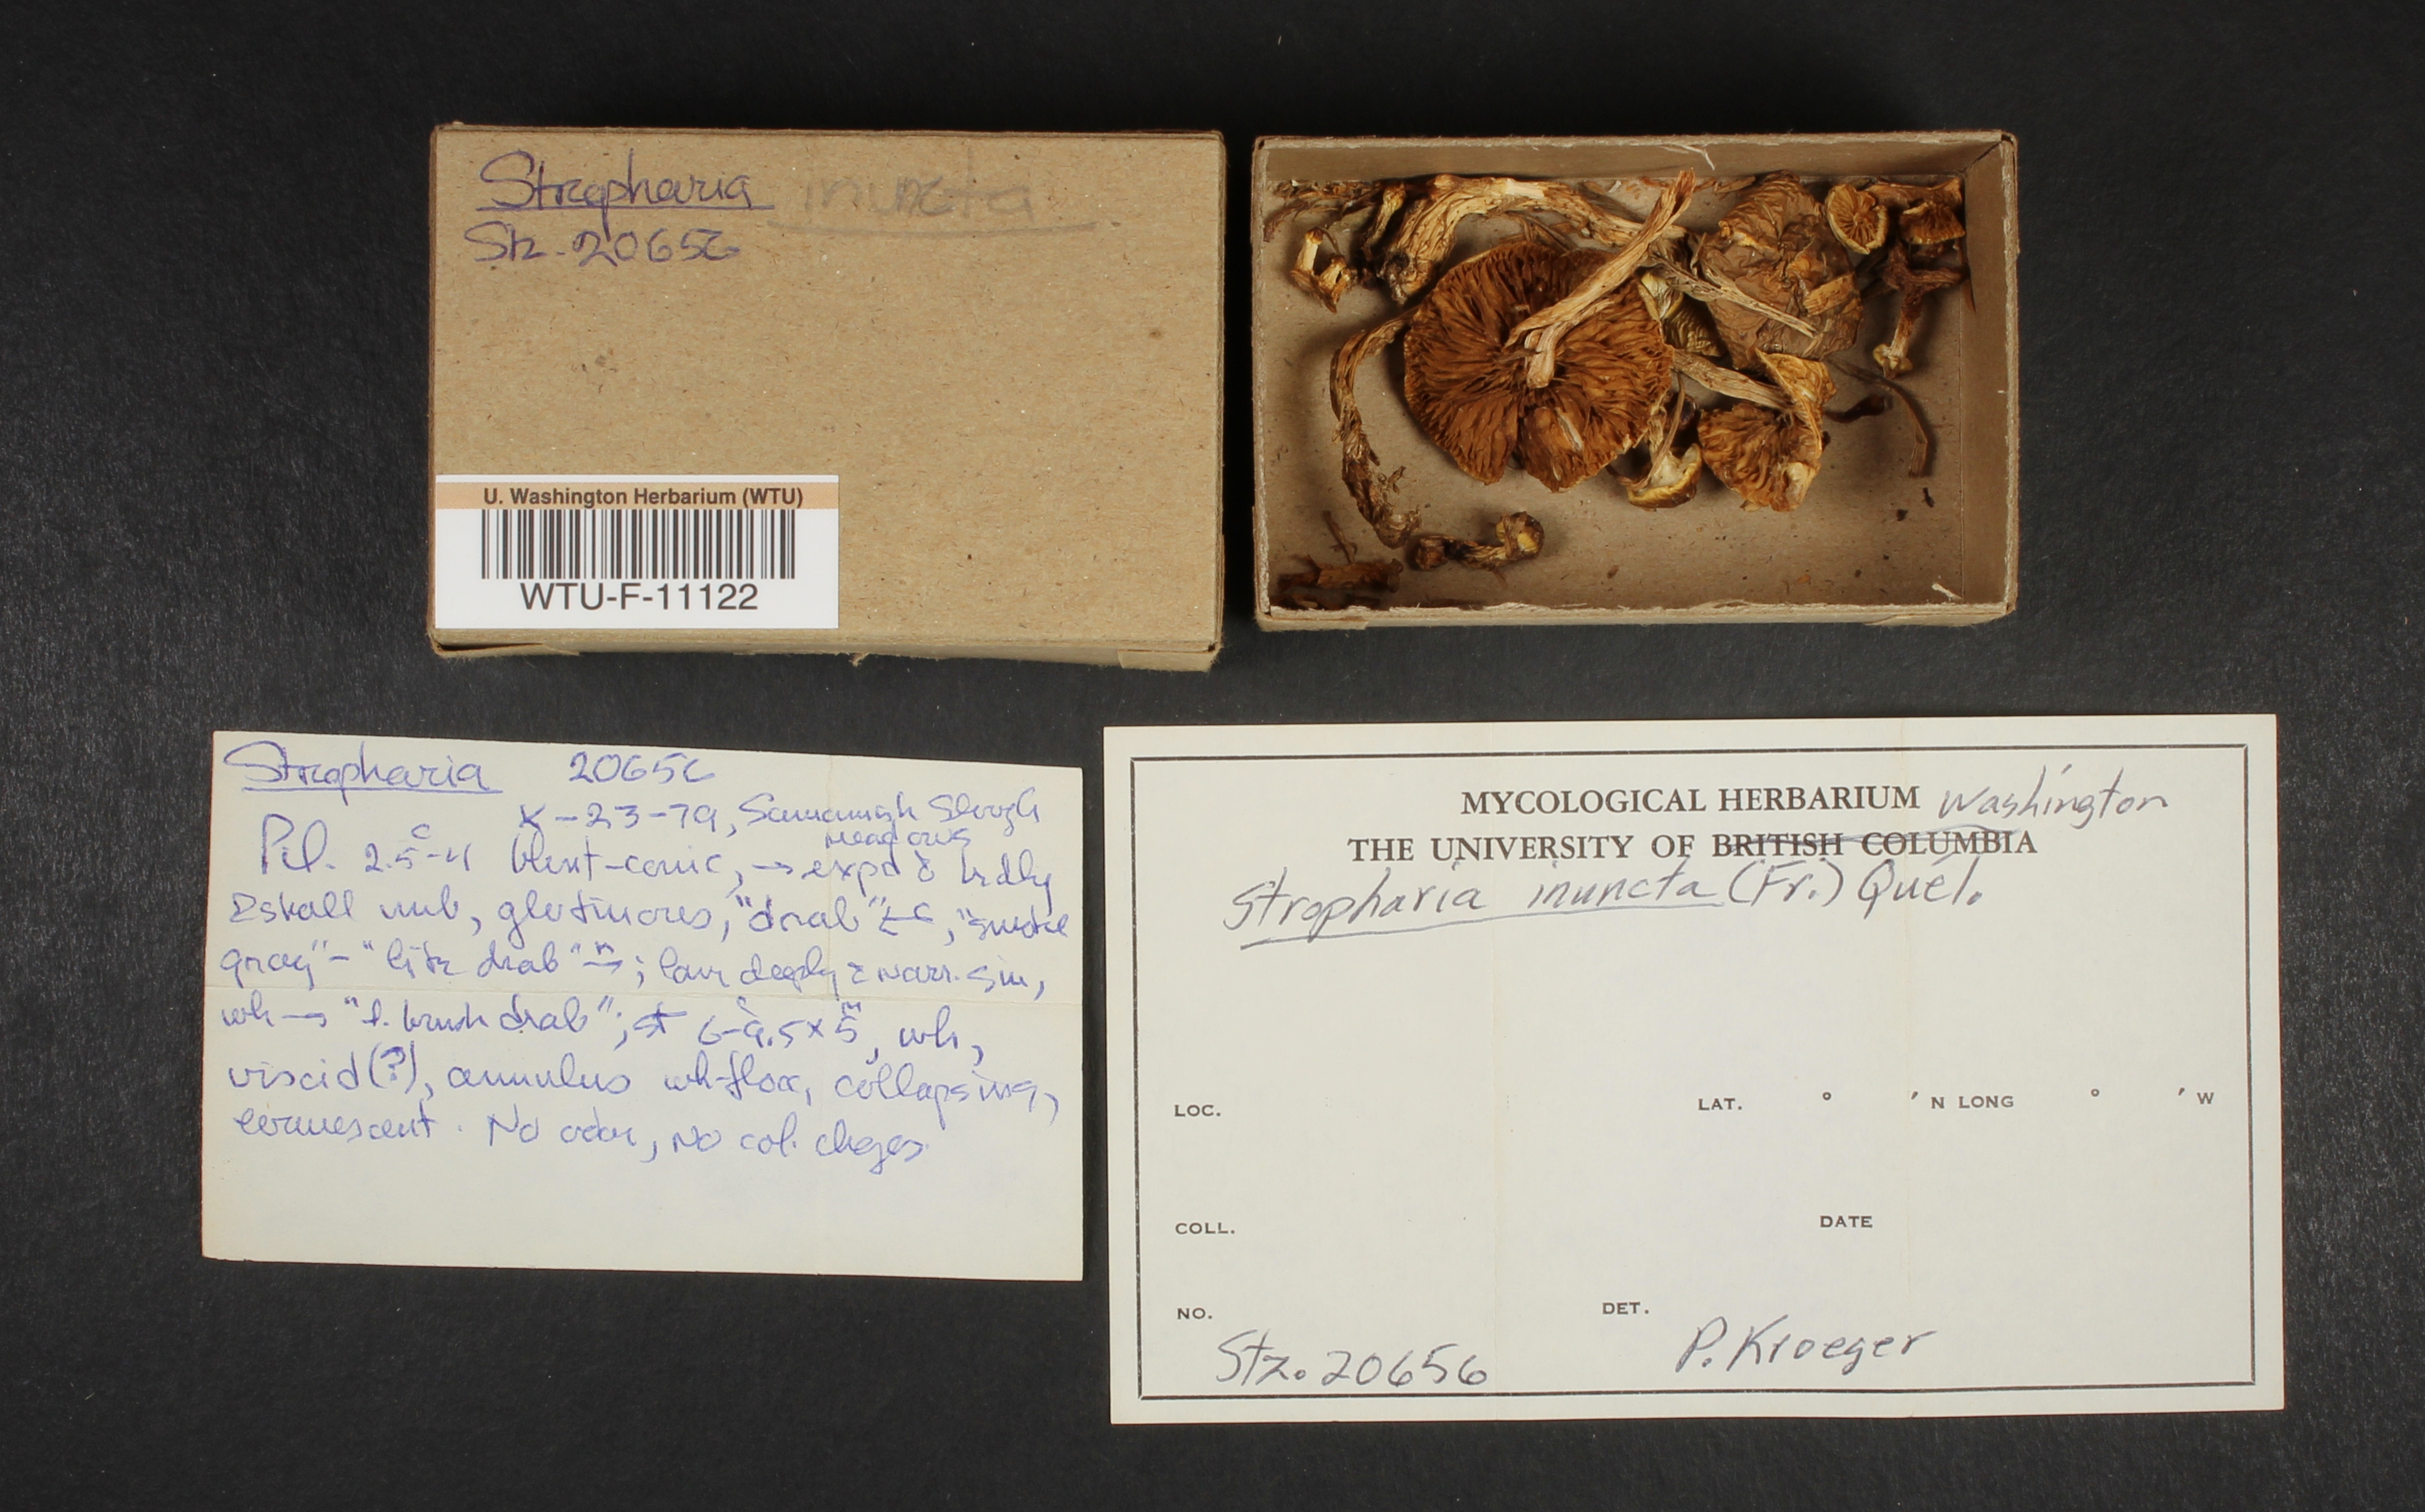 Stropharia inuncta
Stz. 20656
U. Washington Herbarium (WTU)
WTU-F-11122
Stropharia 20656
X-23-79, Samamish Slough
meadows
Pil. 2.5-4 c blunt-conic, → expd & brdly
& shall umb, glutinous, "drab" c, "smoke
gray" - "lite drab" m →; lam deeply & narr. sin,
wh → " drab"; st 6-9.5 c × 5 m, wh,
viscid (?), annulus wh-flocc, collapsing,
evanescent. No odor, no col. chges.
MYCOLOGICAL HERBARIUM Washington
THE UNIVERSITY OF BRITISH COLUMBIA
Stropharia inuncta (Fr.) Quél.
LOC. LAT. ° ′ N LONG ° ′ W
COLL. DATE
NO. DET.
Stz. 20656 P. Kroeger